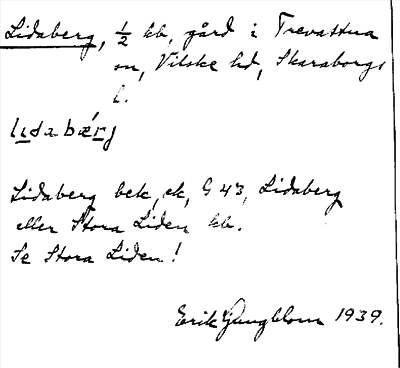 Lidaberg, ½ kb, gård i Trevattna
sn, Vilske hd, Skaraborgs
l.
lidabærj
Lidaberg bek, ek, G 43, Lidaberg
eller Stora Liden kb.
Se Stora Liden!
Erik Ljungblom 1939.